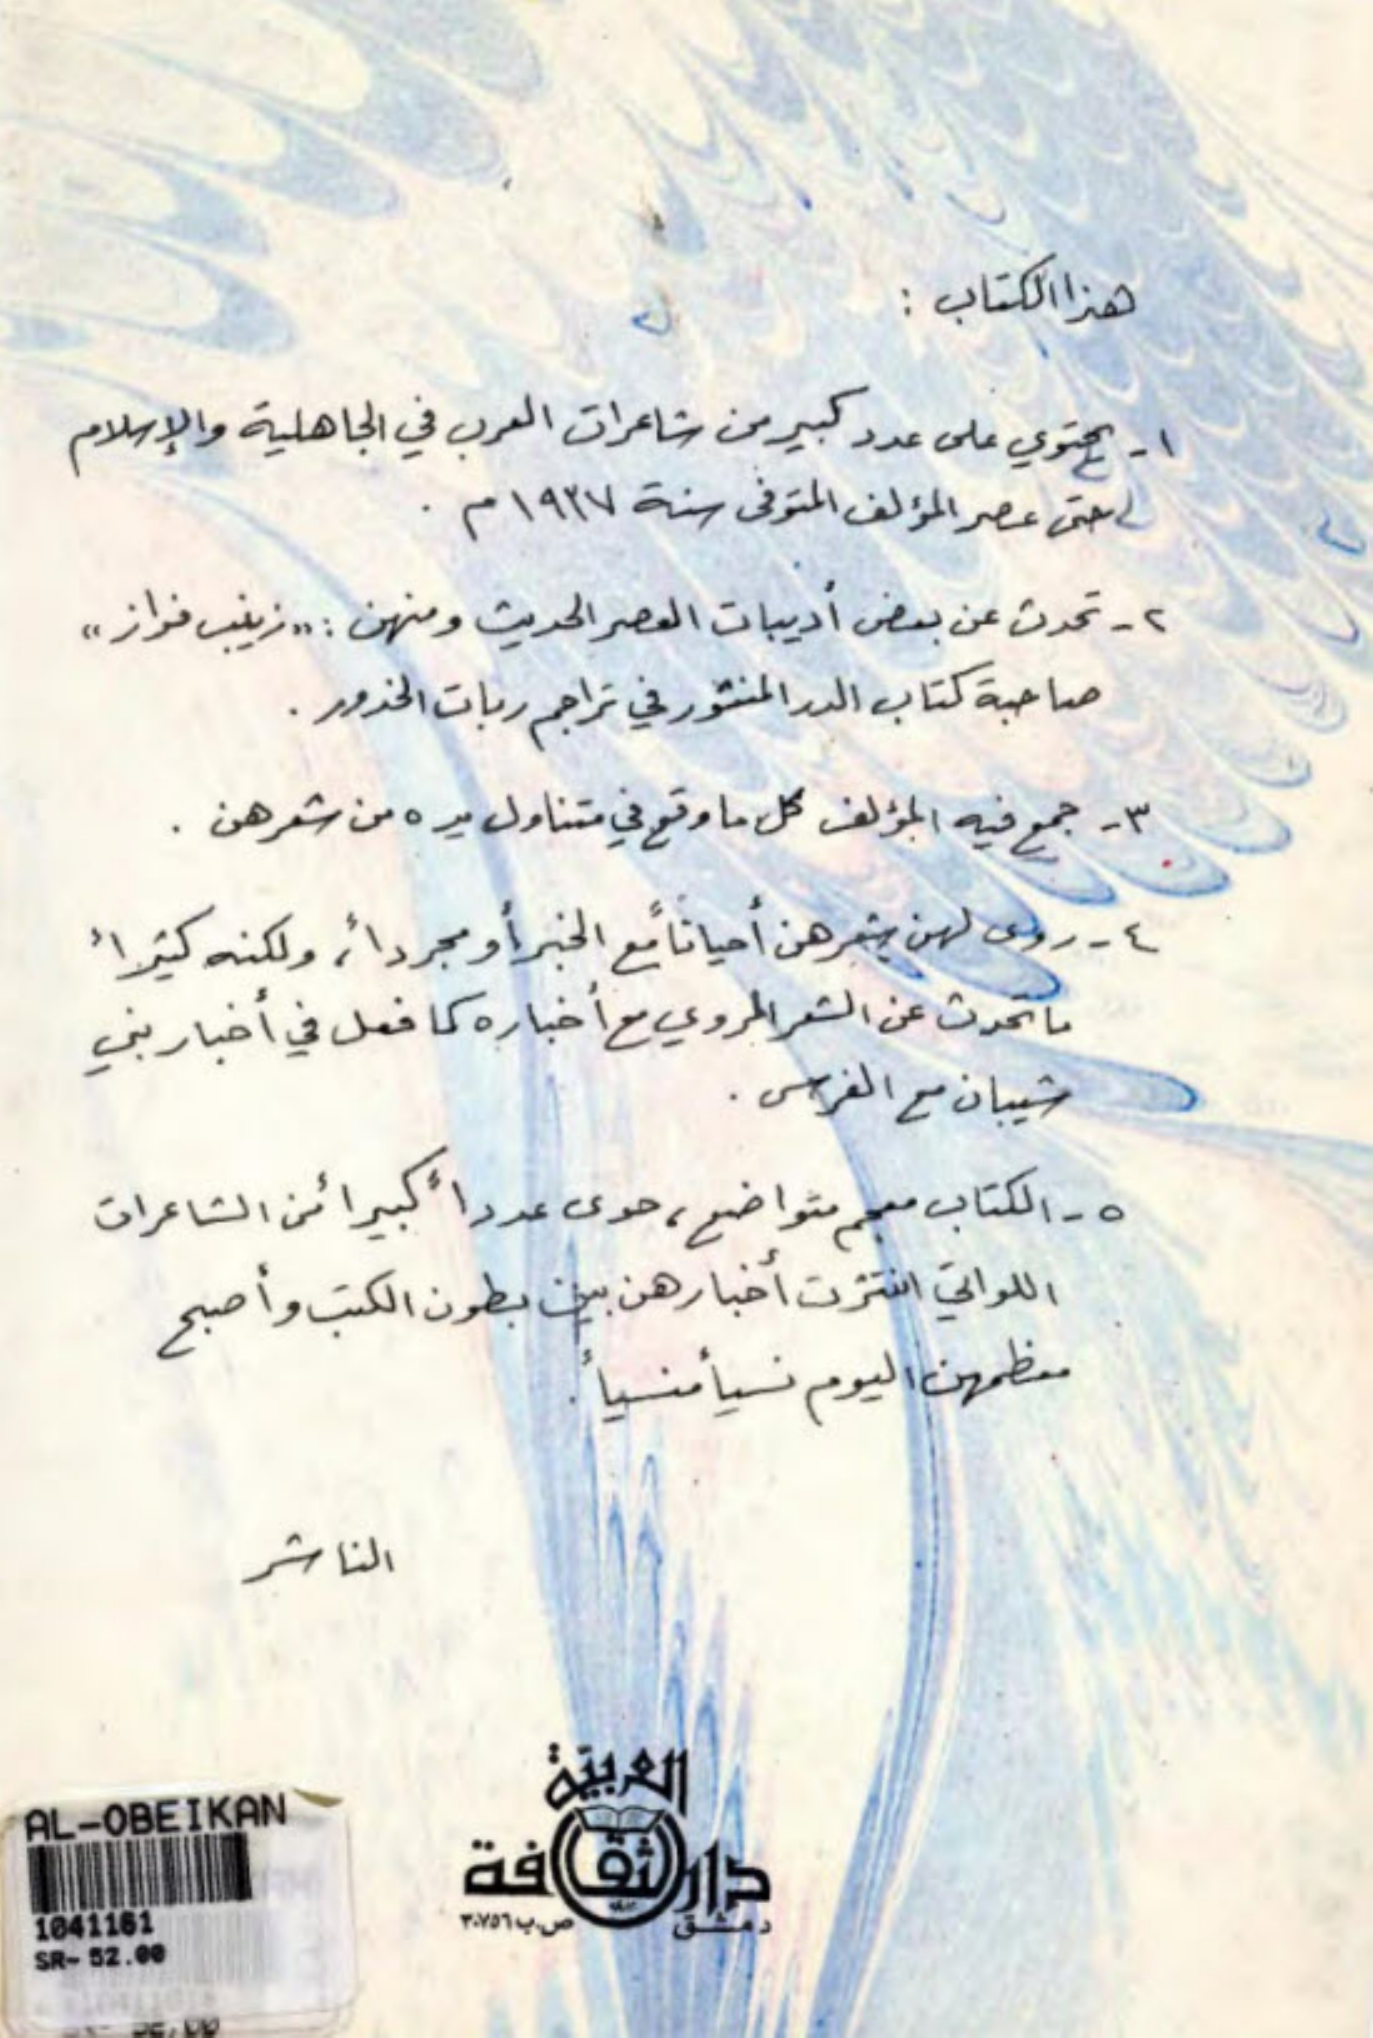 هذا الكتاب :
١- يحتوي على عدد كبير من شاعرات العرب في الجاهلية والإسلام
حتى عصر المؤلف المتوفى سنة ١٩٣٧ م .
٢- تحدث عن بعض أديبات العصر الحديث ومنهن : «زينب فواز»
صاحبة كتاب الدر المنثور في تراجم ربات الخدور .
٣- جمع فيه المؤلف كل ما وقع في متناول يده من شعرهن .
٤- روى لهن شعرهن أحياناً مع الخبر أو مجرداً ، ولكنه كثيراً
ما تحدث عن الشعر المروي مع أخباره كما فعل في أخبار بني
شيبان مع الفرس .
٥- الكتاب معجم متواضع ، حوى عدداً كبيراً من الشاعرات
اللواتي انتثرت أخبارهن بين بطون الكتب وأصبح
معظمهن اليوم نسياً منسياً .
الناشر
دار الثقافة العربية
دمشق ص.ب ٣٠٧٥٦
AL-OBEIKAN
1041161
SR- 52.00